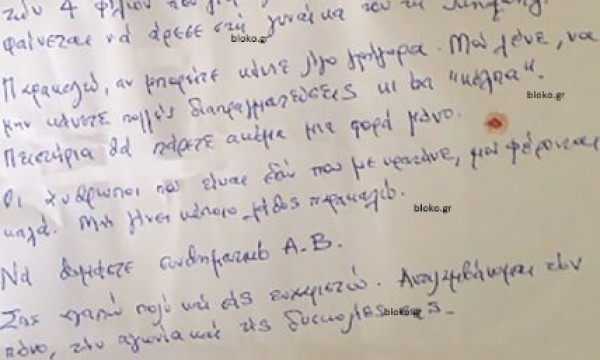 των 4 φίλων του για
φαίνεται να άρεσε στη γυναίκα του
bloko.gr
Παρακαλώ, αν μπορείτε κάντε λίγο γρήγορα. Μου λένε, να
μην κάνετε πολλές διαπραγματεύσεις κι θα "κόλπα".
bloko.gr
Πειστήρια θα πάρετε ακόμα μια φορά μόνο.
Οι άνθρωποι που είναι εδώ που με κρατάνε, μου φέρονται
καλά. Μη γίνει κάποιο λάθος παρακαλώ.
bloko.gr
Να θυμάστε συνθηματικό Α.Β.
Σας αγαπώ πολύ και σας ευχαριστώ. Αντιλαμβάνομαι τον
πόνο, την αγωνία και τις δυσκολίες σας.
bloko.gr